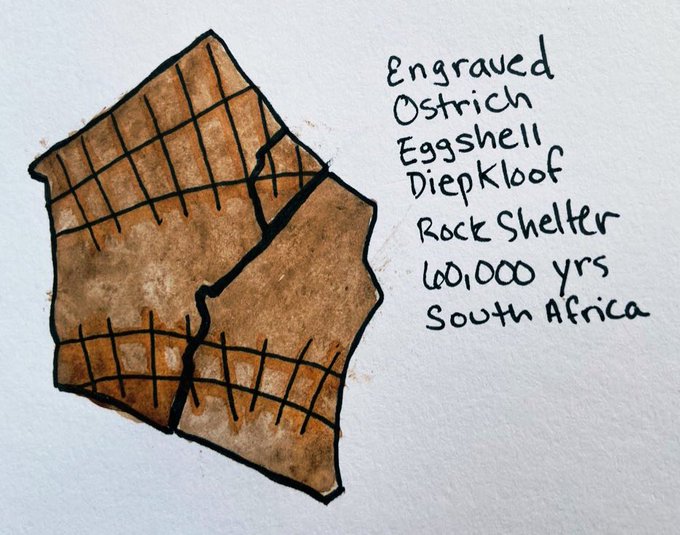 Engraved
Ostrich
Eggshell
Diepkloof
Rock Shelter
60,000 yrs
South Africa